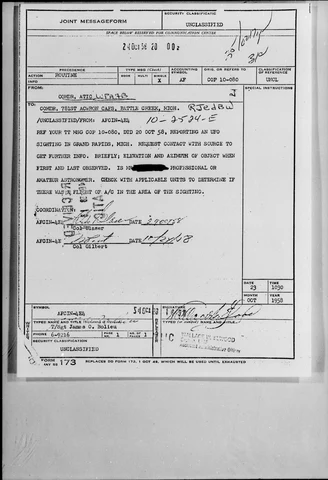 JOINT MESSAGEFORM
SECURITY CLASSIFICATION
UNCLASSIFIED
SPACE BELOW RESERVED FOR COMMUNICATION CENTER
24 Oct 58 20 00z
PRECEDENCE
TYPE MSG (Check)
ACCOUNTING SYMBOL
ORIG. OR REFERS TO
CLASSIFICATION OF REFERENCE
ACTION
ROUTINE
BOOK
MULTI
SINGLE
X
AF
COP 10-080
UNCL
INFO
FROM:
COMDR, ATIC
TO:
COMDR, 781ST AC&WRON CAPS, BATTLE CREEK, MICH. RJEDBW
/UNCLASSIFIED/FROM: AFCIN-4E4 10-2524-E
REF YOUR TT MSG COP 10-080, DTD 20 OCT 58, REPORTING AN UFO
SIGHTING IN GRAND RAPIDS, MICH. REQUEST CONTACT WITH SOURCE TO
GET FURTHER INFO. BRIEFLY; ELEVATION AND AZIMUTH OF OBJECT WHEN
FIRST AND LAST OBSERVED. IS PROFESSIONAL OR
AMATEUR ASTRONOMER. CHECK WITH APPLICABLE UNITS TO DETERMINE IF
THERE WAS FLIGHT OF A/C IN THE AREA OF THE SIGHTING.
COORDINATION:
AFCIN-4E DATE
AFCIN-4X DATE
Col Gilbert
DATE
TIME
23
1030
MONTH
YEAR
OCT
1958
SYMBOL
AFCIN-4E4
SIGNATURE
TYPED NAME AND TITLE
T/Sgt James O. Bolieu
PHONE
6-9216
PAGE NO.
1
NO. OF PAGES
1
SECURITY CLASSIFICATION
UNCLASSIFIED
TYPED (or stamped) NAME AND TITLE
WALLACE W. ELWOOD
DD FORM 173 REPLACES DD FORM 173, 1 OCT 49, WHICH WILL BE USED UNTIL EXHAUSTED